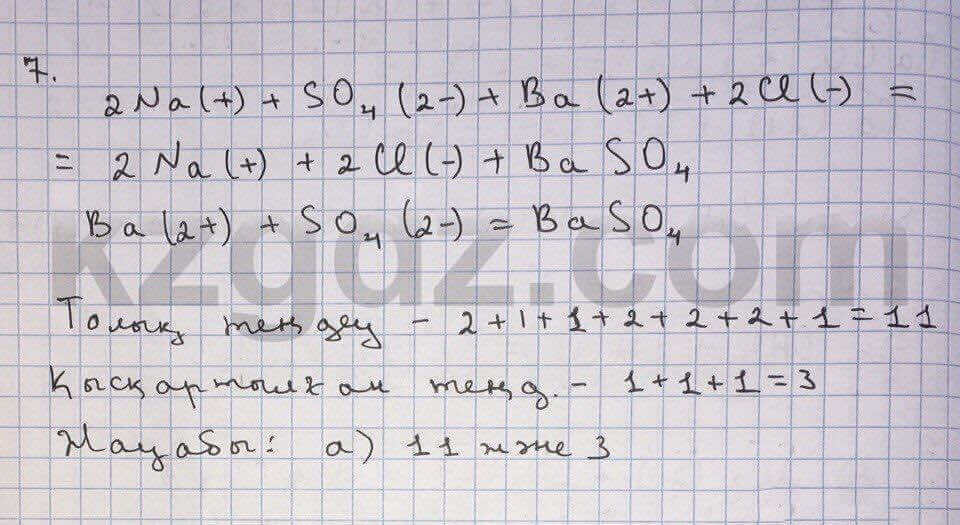 7.
2Na(+) + SO₄(2-) + Ba(2+) + 2Cl(-) =
= 2Na(+) + 2Cl(-) + BaSO₄
Ba(2+) + SO₄(2-) = BaSO₄
Толық теңдеу - 2+1+1+2+2+2+1=11
Қысқартылған теңд. - 1+1+1=3
Жауабы: а) 11 және 3
kzgdz.com